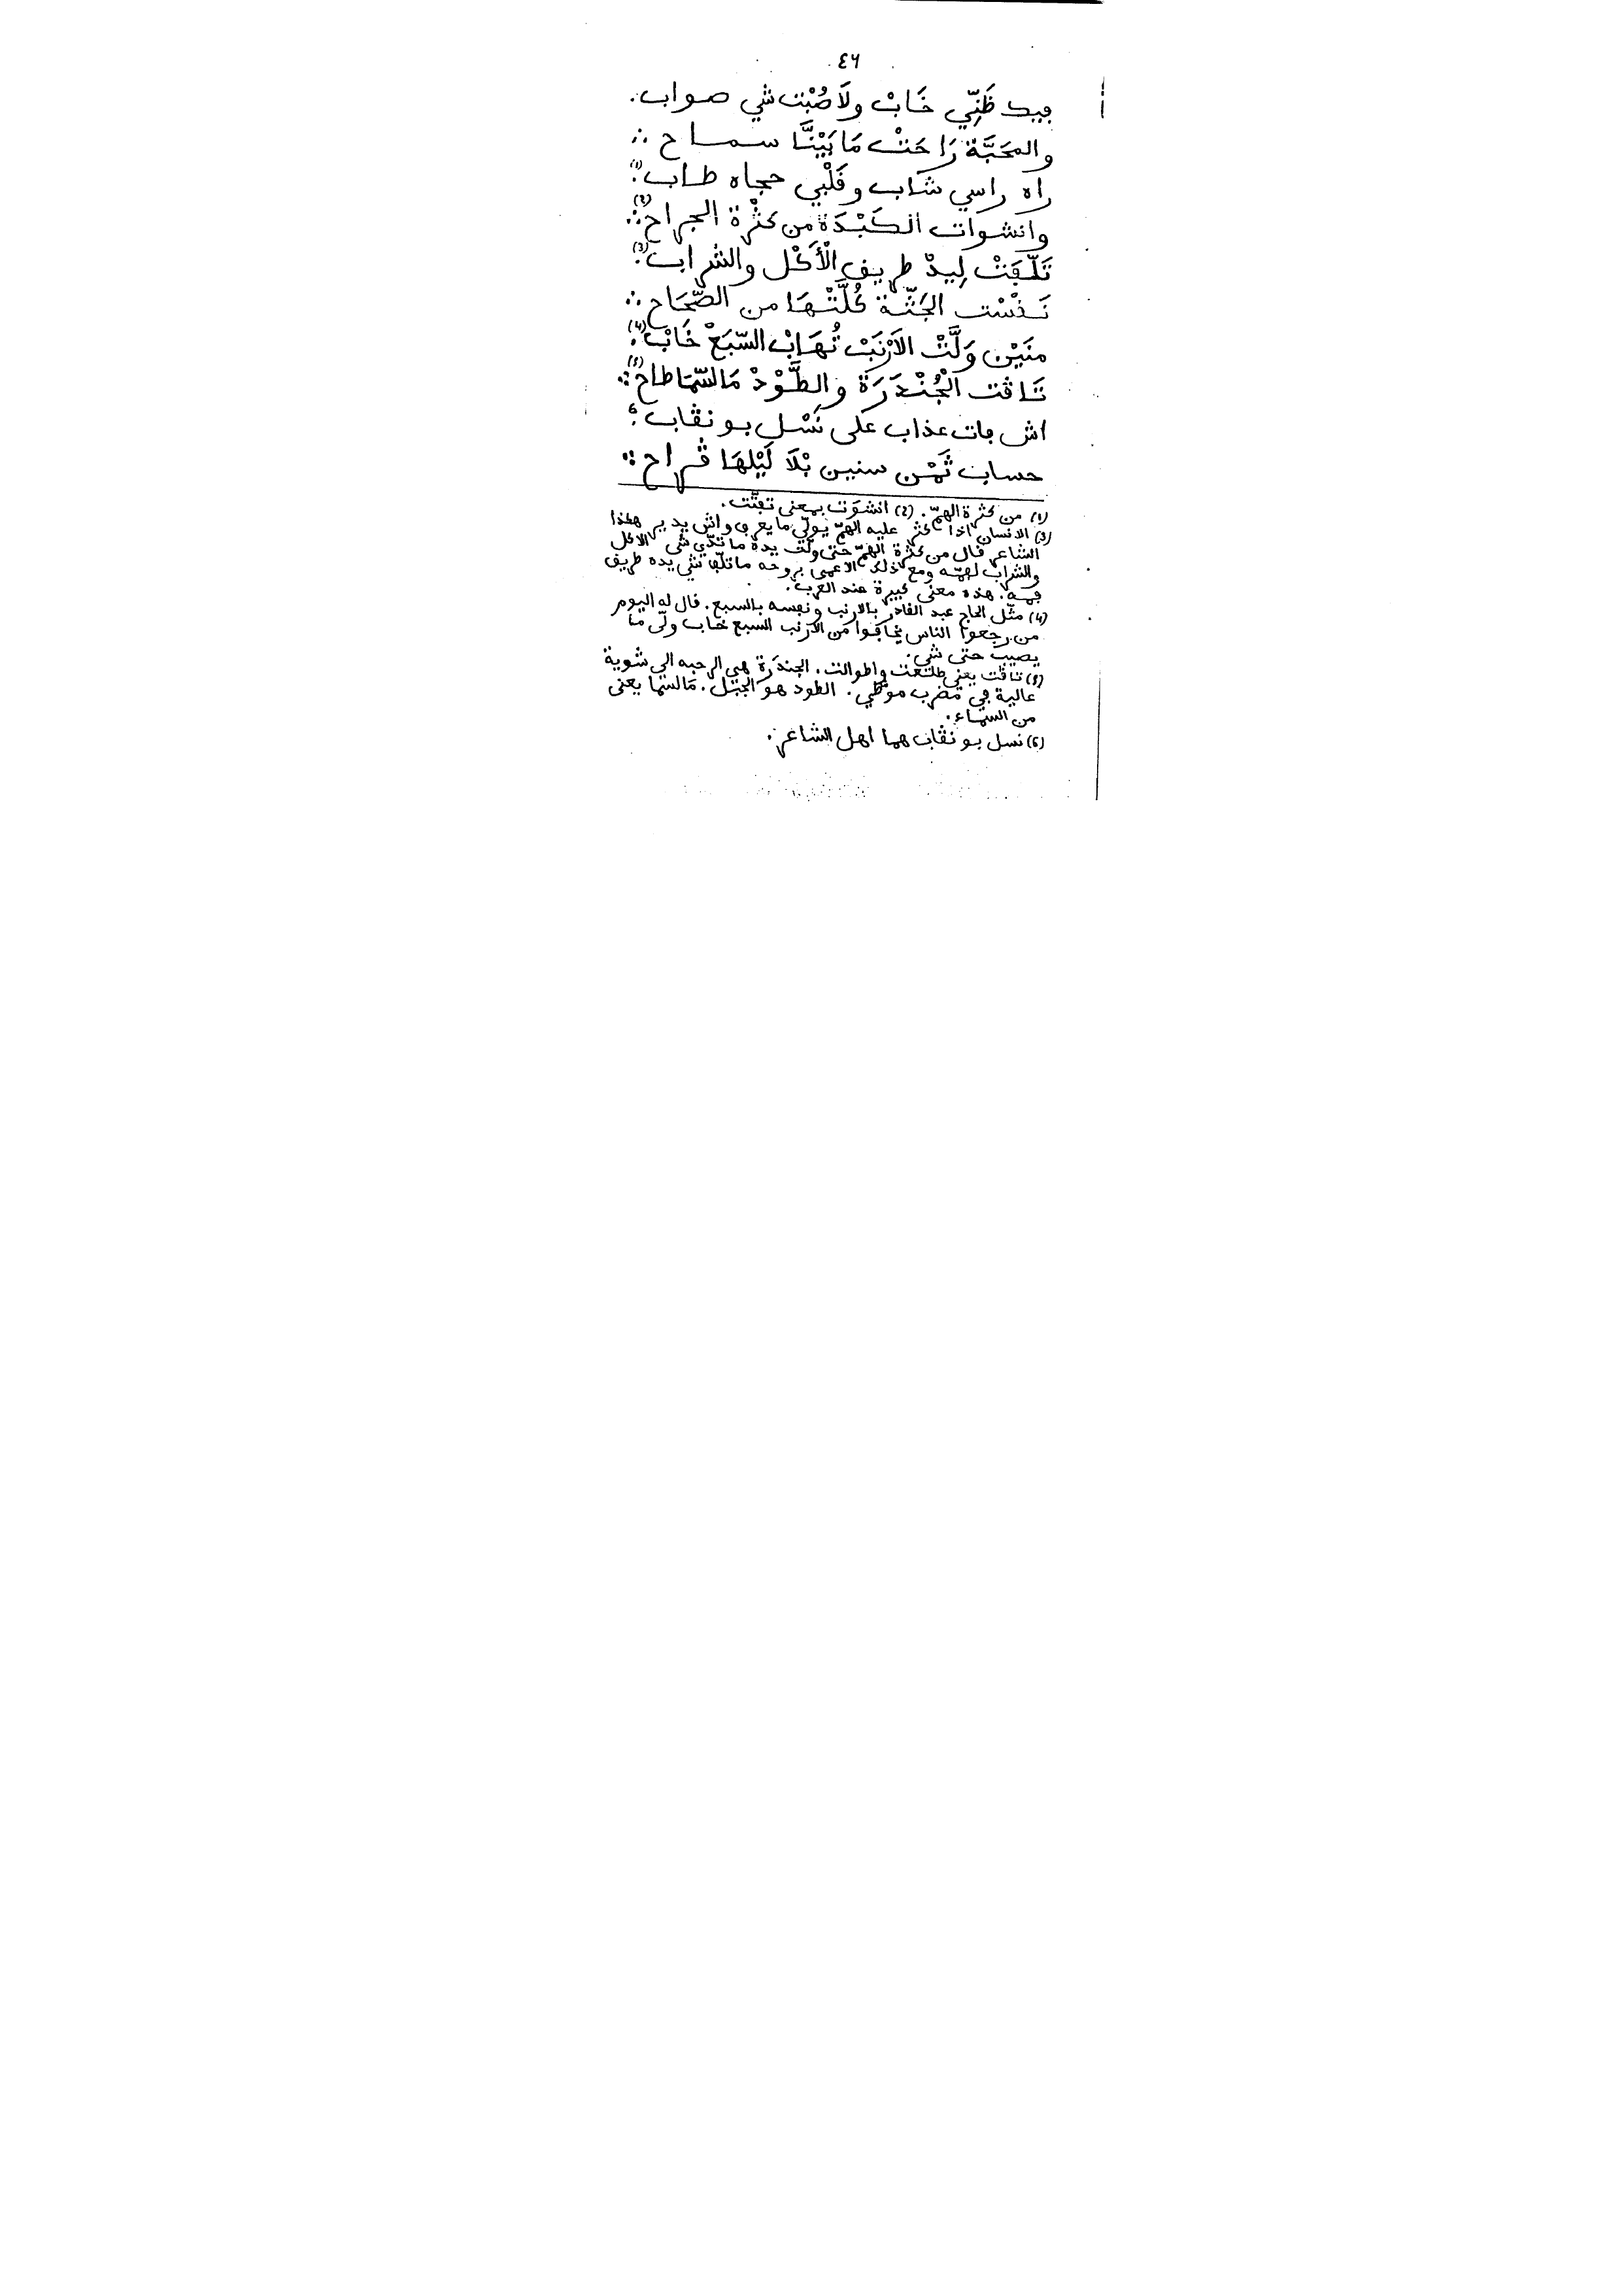 ٤٦
فيك ظَنِّي خَابْ ولَا صُبْت شي صواب.
والمحَبَّة رَاحَتْ مَا بَيْنَّا سماح ∴
راه راسي شاب وقَلْبي حجاه طاب (1)؛
وانشوات الكَبْدَة من كثْرة الجراح (2)∴
تَلّفَتْ لِيدْ طريف الْأَكْل والشراب (3)؛
نَخْسْت الجَثّة كُلَّتْهَا من الصّحَاح ∴
منَيْن وَلَّتْ الاَرْنَبْ تُهَابْ السّبَعْ خَابْ (4)؛
تَاڨت الْجُنْدَرَة والطَّوْدْ مَالسّمَا طاح (5)∴
اش فات عذاب على نَسْل بو نڨاب 6؛
حساب ثَمْن سنين بْلَا لَيْلهَا ڨراح ∴
(1) من كثرة الهمّ. (2) انشوَت بمعنى تفتّت.
(3) الانسان اذا كثر عليه الهمّ يولّي ما يعرف واش يدير هكذا
الشاعر قال من كثرة الهمّ حتى ولّت يده ما تدّي شي الاكل
والشراب لفمّه ومع ذلك الاعمى بروحه ما تلّف شي يده طريف
فمه. هذه معنى كبيرة عند العرب.
(4) مثّل الحاج عبد القادر بالارنب ونفسه بالسبع. قال له اليوم
من رجعوا الناس يخافوا من الارنب السبع خاب ولّى ما
يصيب حتى شي.
(5) تاڨت يعني طلعت واطوالت. الجندَرة هي الرحبه الي شوية
عالية في مضرب موطي. الطود هو الجبل. مَالسما يعني
من السماء.
(6) نسل بو نڨاب هما اهل الشاعر.